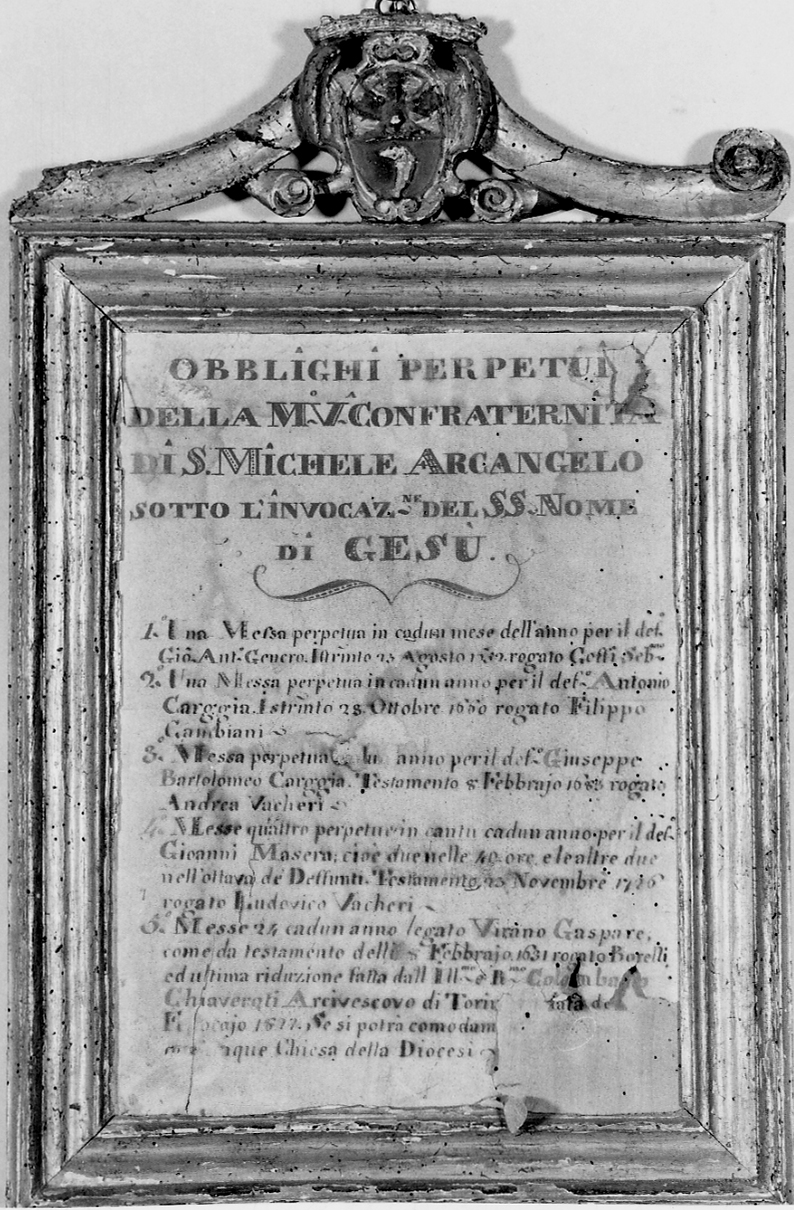 OBBLIGHI PERPETUI
DELLA M.º V.ᴬ CONFRATERNITA
DI S. MICHELE ARCANGELO
SOTTO L'INVOCAZ.ᴺᴱ DEL SS. NOME
DI GESÙ.
1.º Una Messa perpetua in cadun mese dell'anno per il def.º
Gio. Ant.º Genero. Istrm̃to Agosto rogato
2.º Una Messa perpetua in cadun anno per il def.º Antonio
Carggia. Istrm̃to 28 Ottobre rogato Filippo
Gambiani
3.º Messa perpetua anno per il def.º Giuseppe
Bartolomeo Carggia. Testamento Febbrajo rogato
Andrea Vacheri
4.º Messe quattro perpetue in cantu cadun anno per il def.º
Gioanni Masera, cioè due nelle 40 ore, e le altre due
nell'ottava de' Deffunti. Testamento, 23 Novembre
rogato Ludovico Vacheri
5.º Messe 24 cadun anno legato Virano Gaspare,
come da testamento delli Febbrajo 1631 rogato Borelli
ed ultima riduzione fatta dall' Ill.ᵐᵒ e R.ᵐᵒ
Chiaveroti Arcivescovo di
Se si potrà
Chiesa della Diocesi